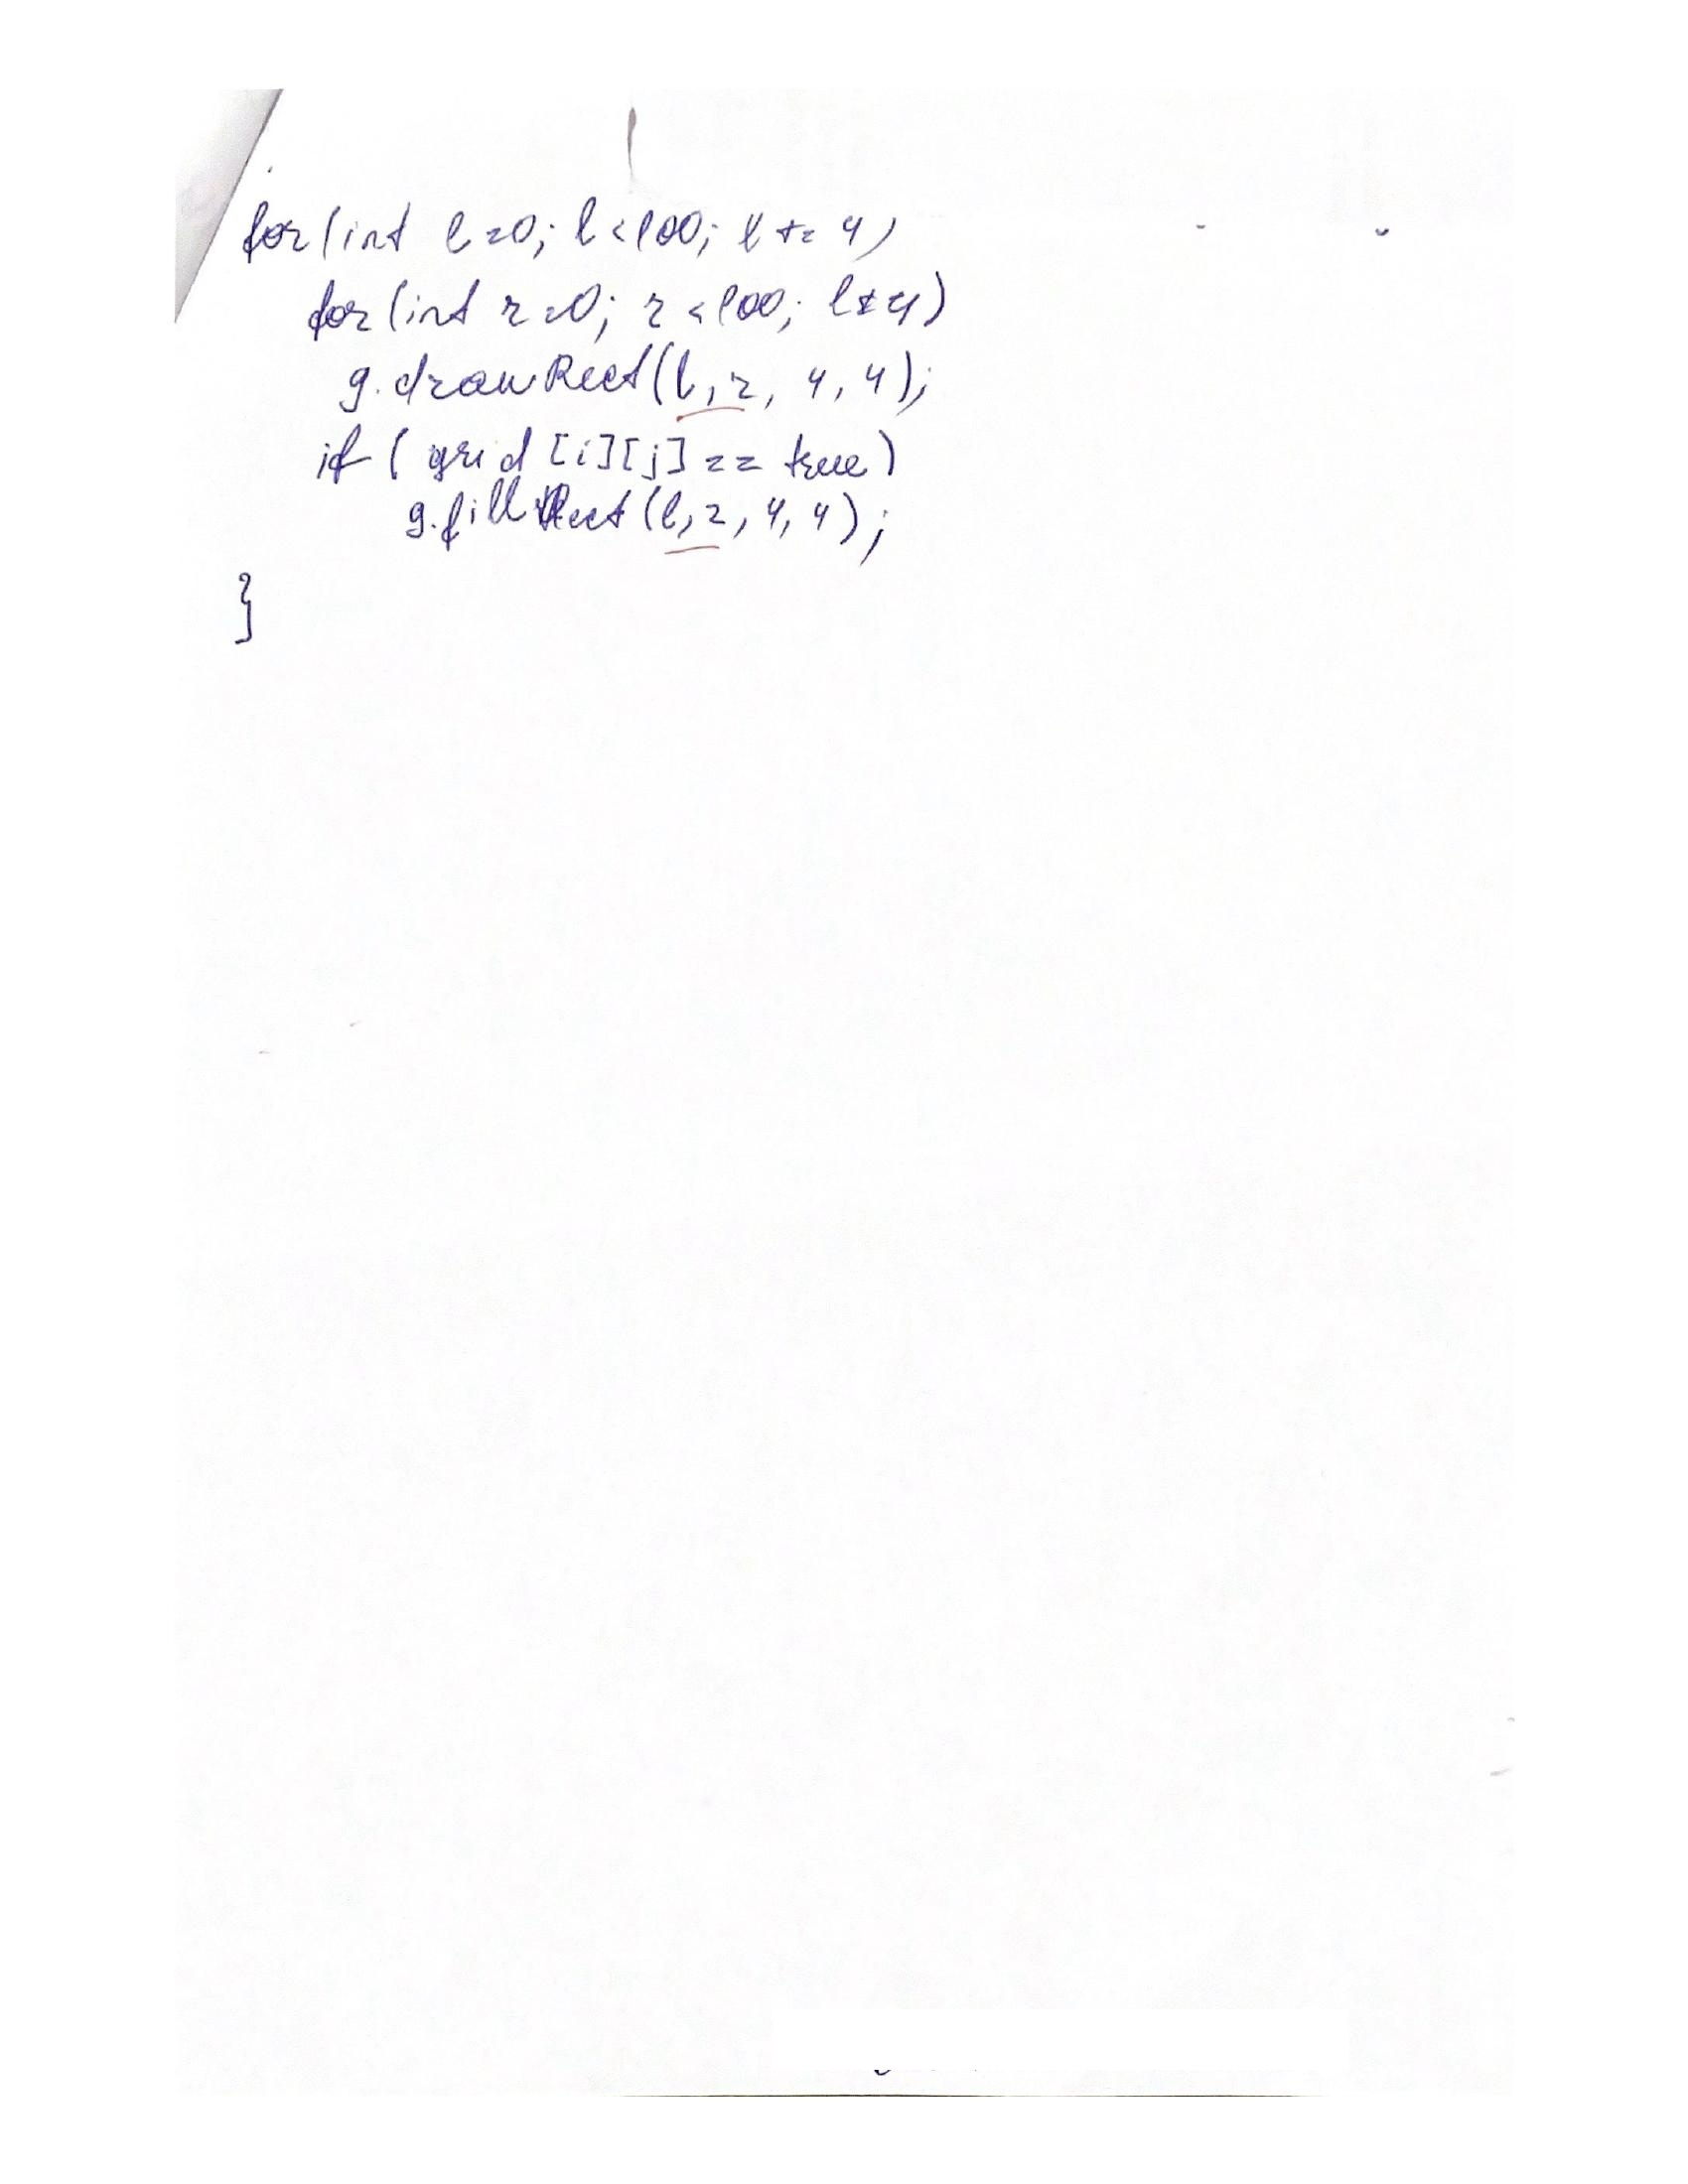 for(int l=0; l<100; l += 4)
for(int r=0; r<100; l+=4)
g.drawRect(l, r, 4, 4);
if (grid [i][j] == true)
g.fillRect(l, r, 4, 4);
}